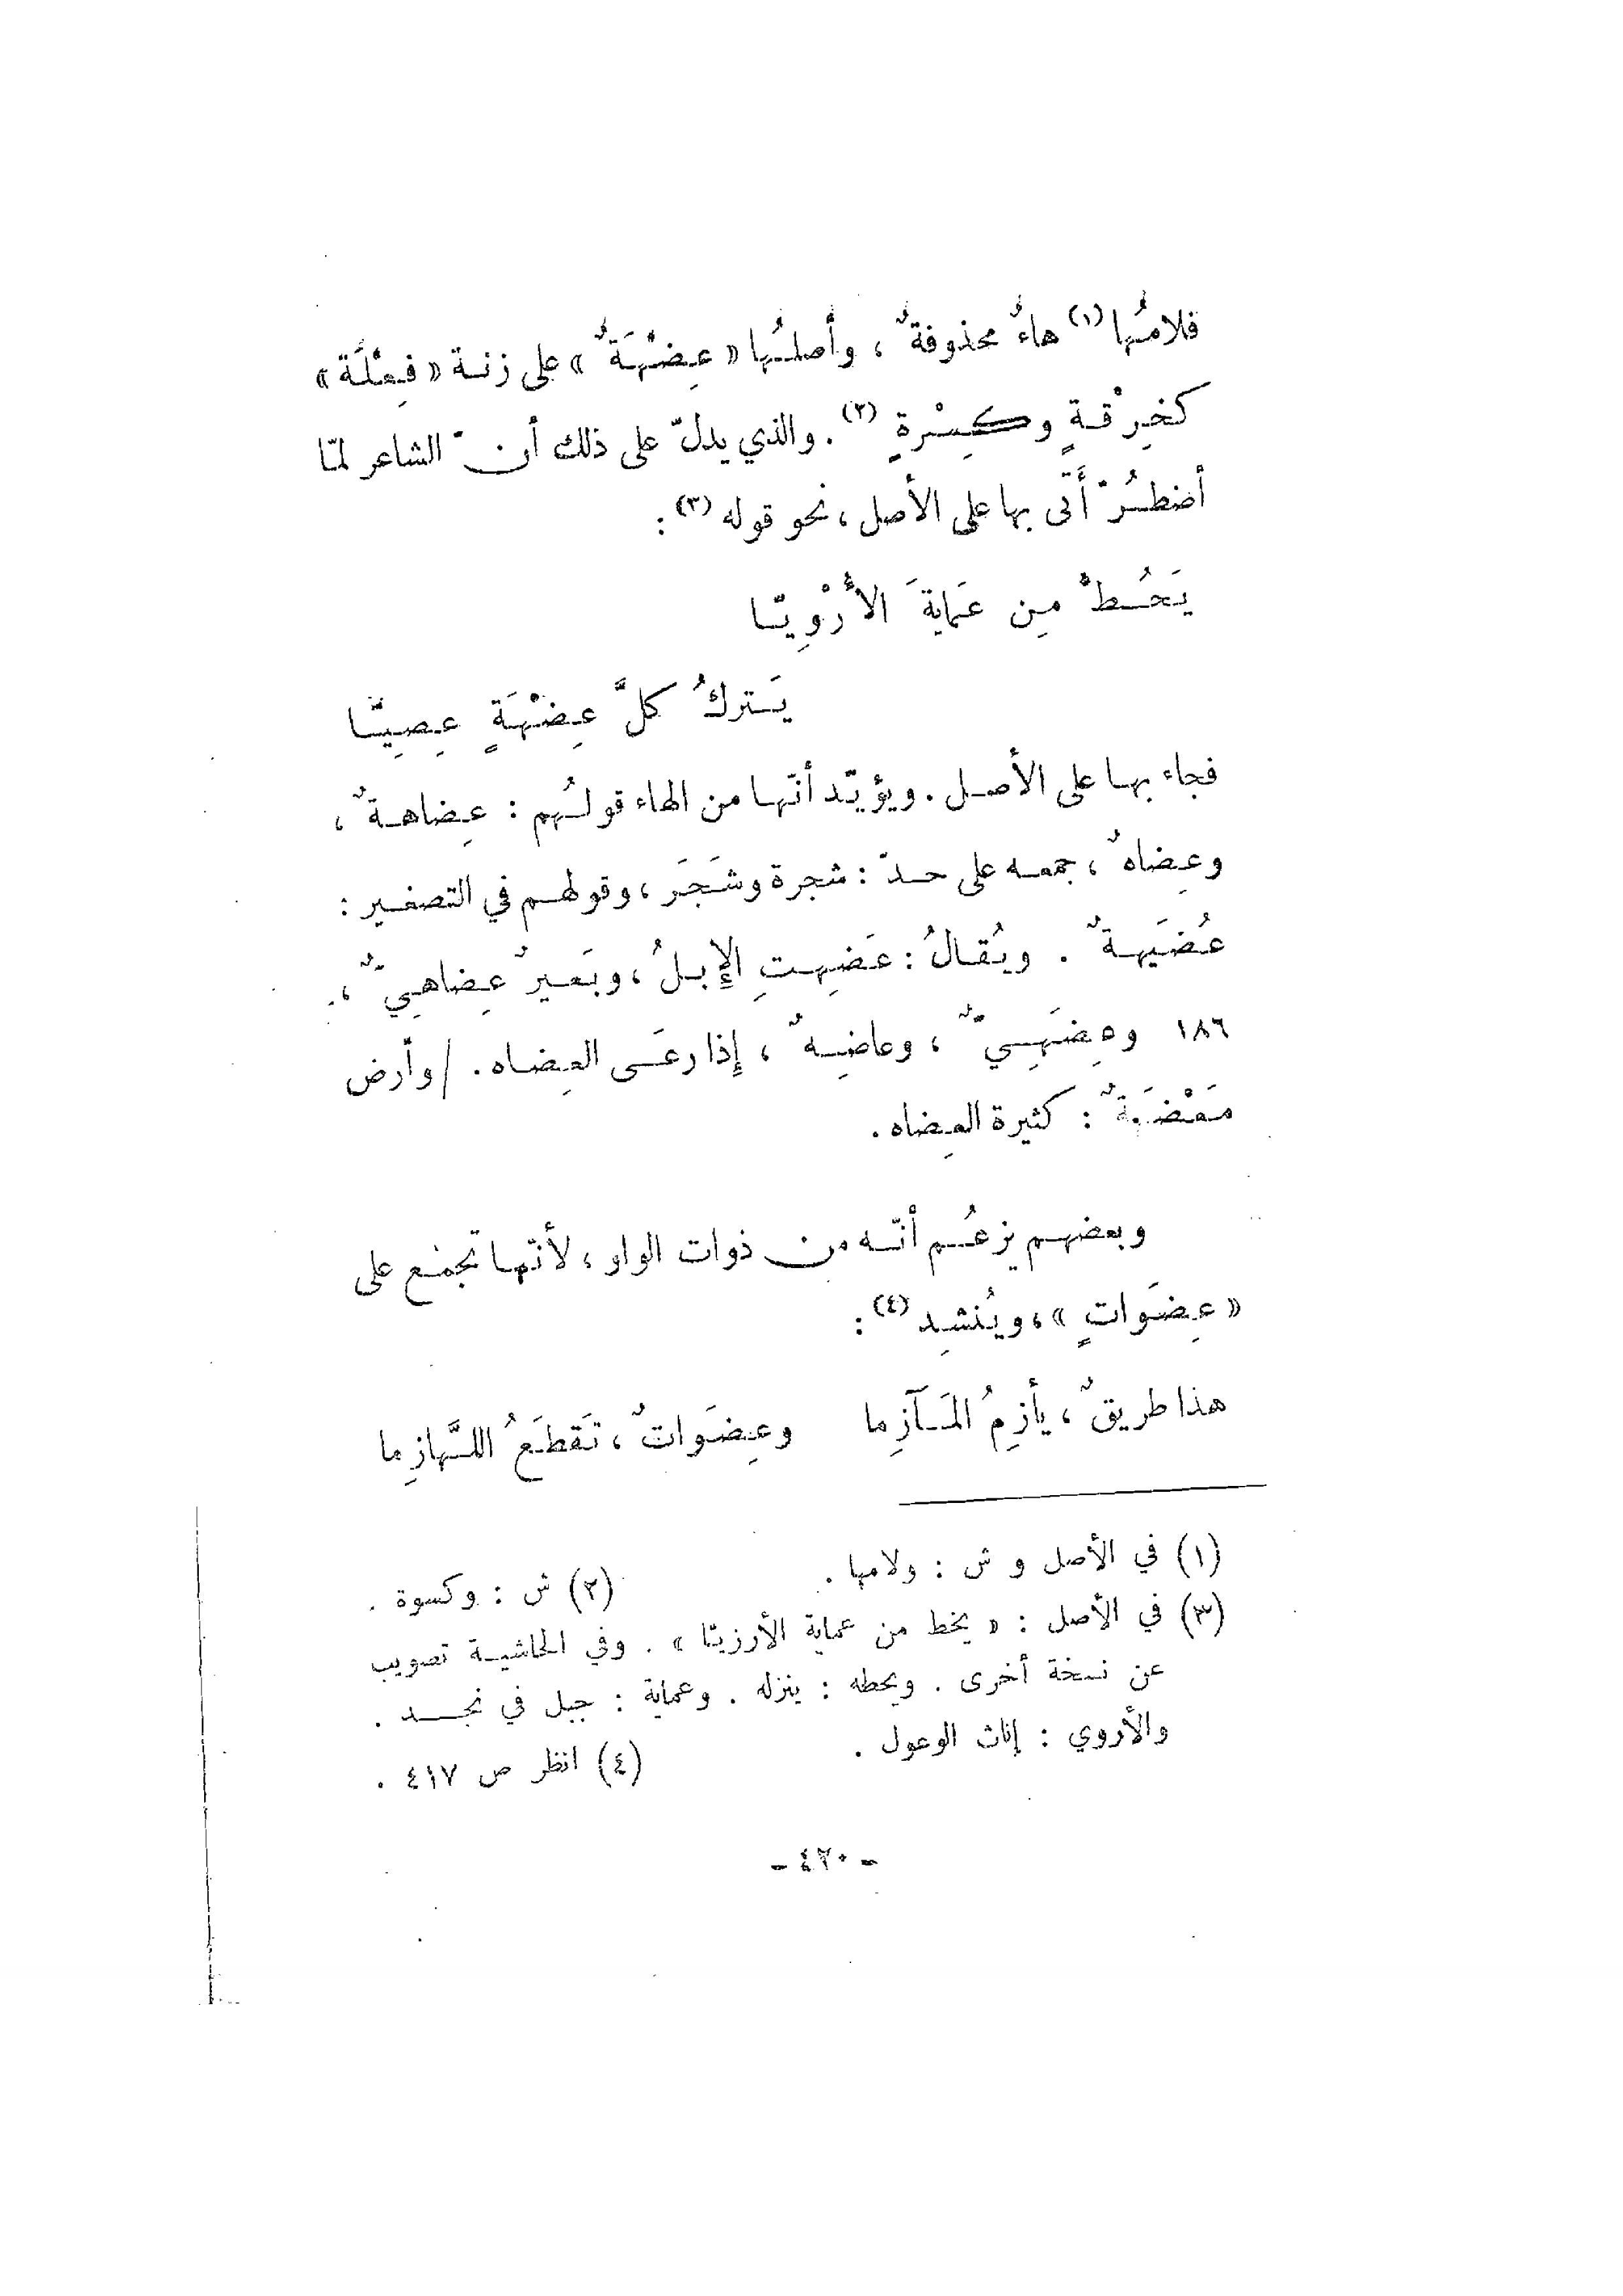 فلامُها (١) هاءٌ محذوفةٌ ، وأصلُها « عِضْهَةٌ » على زنة « فِعْلَة »
كخِرْقةٍ وكِسْرةٍ (٢) . والذي يدلّ على ذلك أنّ الشاعر لمّا
أضطُرّ أَتَى بها على الأصل ، نحو قوله (٣) :
يَحُطُّ مِن عَمايةَ الأُرْوِيّا
يَتركُ كلَّ عِضْهَةٍ عِصِيّا
فجاء بها على الأصل . ويؤيّد أنّها من الهاء قولُهم : عِضاهةٌ ،
وعِضاهٌ ، جمعه على حدّ : شجرة وشَجَر ، وقولهم في التصغير :
عُضَيهةٌ . ويُقالُ : عَضِهتِ الإِبلُ ، وبَعيرٌ عِضاهِيٌّ ،
١٨٦ وعِضَهِيٌّ ، وعاضِهٌ ، إِذا رعَى العِضاه . / وأرض
مَعْضَهَةٌ : كثيرة العِضاه .
وبعضهم يزعُم أنّه من ذوات الواو ، لأنّها تجمع على
« عِضَواتٍ » ، ويُنشِد (٤) :
هذا طريقٌ ، يأزِمُ المَآزِما وعِضَواتٌ ، تَقطَعُ اللَّهازِما
(١) في الأصل و ش : ولامها .
(٢) ش : وكسوة .
(٣) في الأصل : « يخط من عماية الأرزيّا » . وفي الحاشية تصويب
عن نسخة أخرى . ويحطه : ينزله . وعماية : جبل في نجد .
والأروي : إناث الوعول .
(٤) انظر ص ٤١٧ .
- ٤٢٠ -